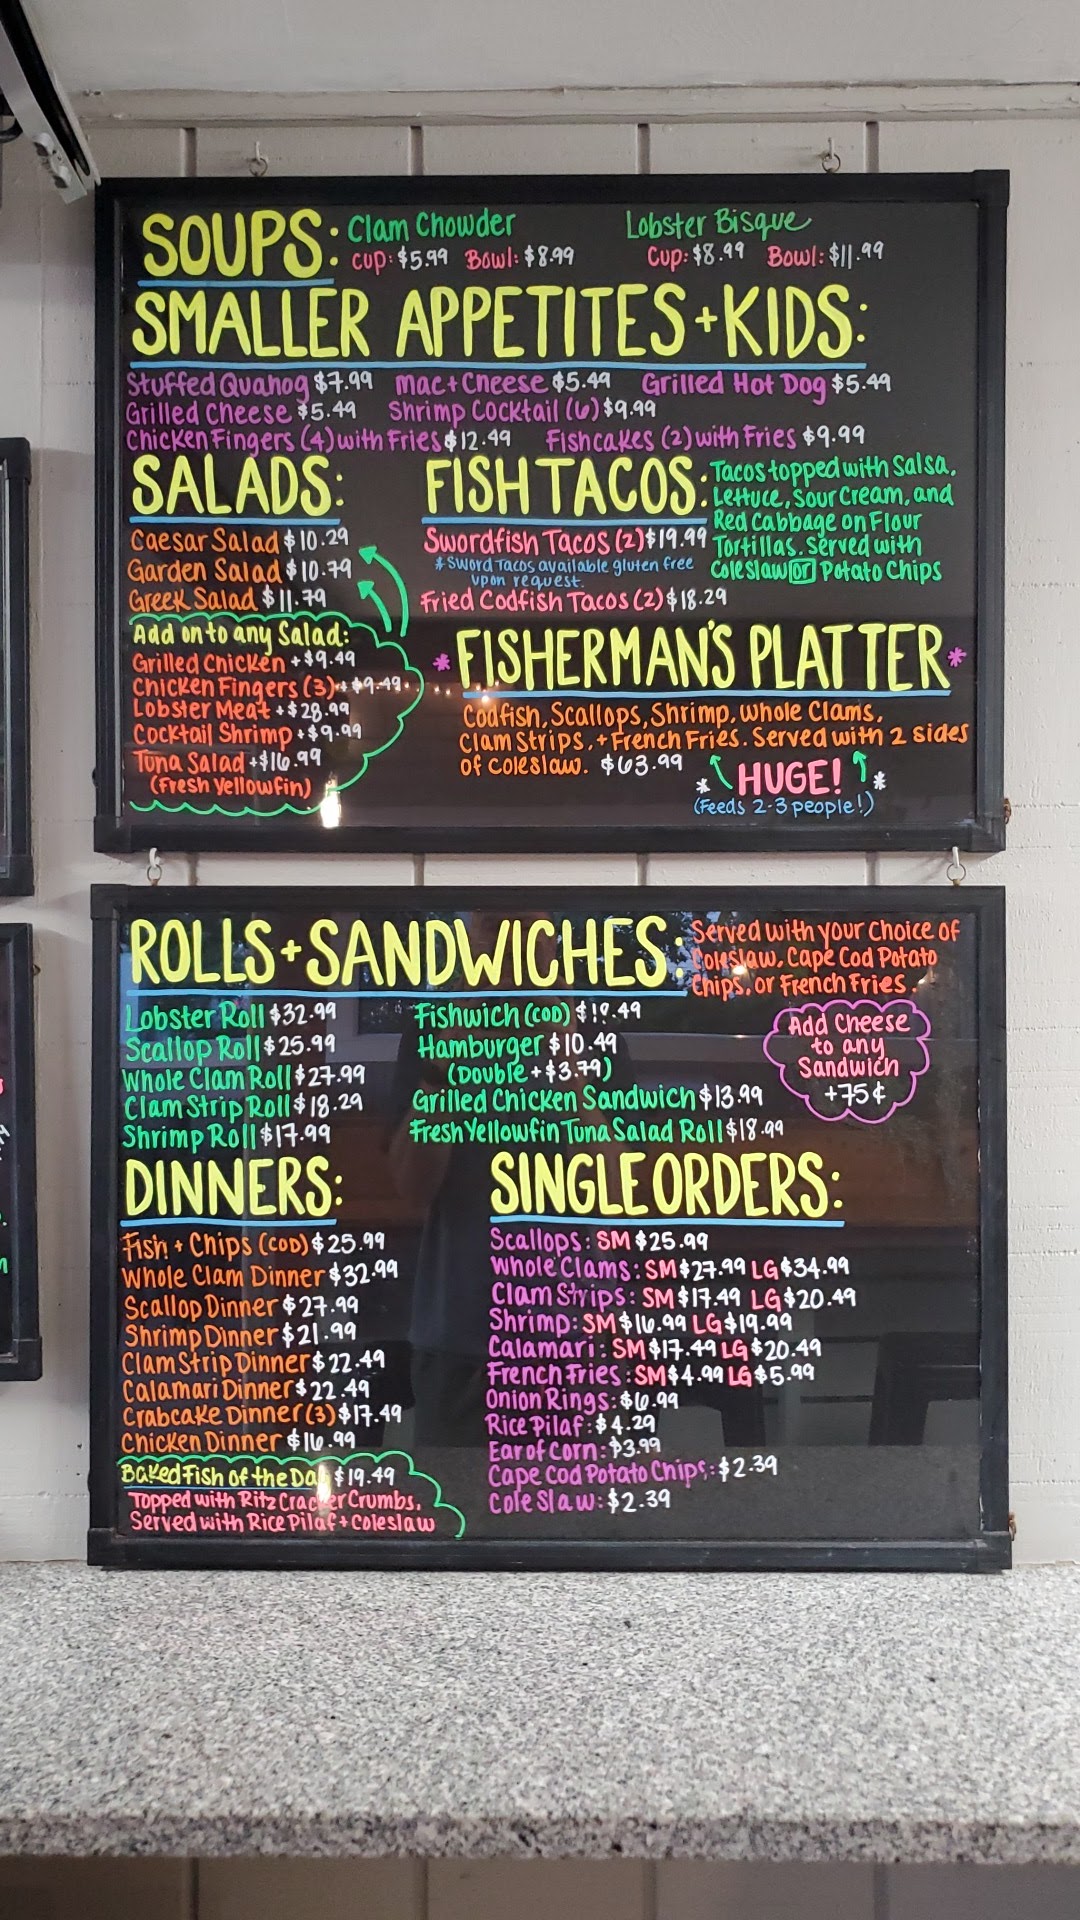 SOUPS: Clam Chowder Lobster Bisque
Cup: $5.99 Bowl: $8.99 Cup: $8.99 Bowl: $11.99
SMALLER APPETITES + KIDS:
Stuffed Quahog $7.99 mac + Cheese $5.49 Grilled Hot Dog $5.49
Grilled Cheese $5.49 Shrimp Cocktail (6) $9.99
Chicken Fingers (4) with Fries $12.49 Fishcakes (2) with Fries $9.99
SALADS:
Caesar Salad $10.29
Garden Salad $10.79
Greek Salad $11.79
Add on to any Salad:
Grilled Chicken +$9.49
Chicken Fingers (3) + $9.49
Lobster Meat +$28.99
Cocktail Shrimp +$9.99
Tuna Salad +$16.99
(Fresh Yellowfin)
FISH TACOS:
Tacos topped with Salsa,
Lettuce, Sour Cream, and
Red Cabbage on Flour
Tortillas. Served with
Coleslaw or Potato Chips
Swordfish Tacos (2) $19.99
*Sword Tacos available gluten free
upon request.
Fried Codfish Tacos (2) $18.29
* FISHERMAN'S PLATTER *
Codfish, Scallops, Shrimp, Whole Clams,
Clam Strips, + French Fries. Served with 2 sides
of coleslaw. $63.99
* HUGE! *
(Feeds 2-3 people!)
ROLLS + SANDWICHES:
Served with your choice of
Coleslaw, Cape Cod Potato
Chips, or French Fries.
Lobster Roll $32.99
Scallop Roll $25.99
Whole Clam Roll $27.99
Clam Strip Roll $18.29
Shrimp Roll $17.99
Fishwich (COD)
Hamburger $10.49
(Double + $3.79)
Grilled Chicken Sandwich $13.99
Fresh Yellowfin Tuna Salad Roll $18.99
Add Cheese
to any
Sandwich
+75¢
DINNERS:
Fish + Chips (COD) $25.99
Whole Clam Dinner $32.99
Scallop Dinner $27.99
Shrimp Dinner $21.99
Clam Strip Dinner $22.49
Calamari Dinner $22.49
Crabcake Dinner (3) $17.49
Chicken Dinner $16.99
Baked Fish of the Day $19.49
Topped with Ritz Cracker Crumbs.
Served with Rice Pilaf + Coleslaw
SINGLE ORDERS:
Scallops: SM $25.99
Whole Clams: SM $27.99 LG $34.99
Clam Strips: SM $17.49 LG $20.49
Shrimp: SM $16.99 LG $19.99
Calamari: SM $17.49 LG $20.49
French Fries: SM $4.99 LG $5.99
Onion Rings: $6.99
Rice Pilaf: $4.29
Ear of Corn: $3.99
Cape Cod Potato Chips: $2.39
Cole Slaw: $2.39